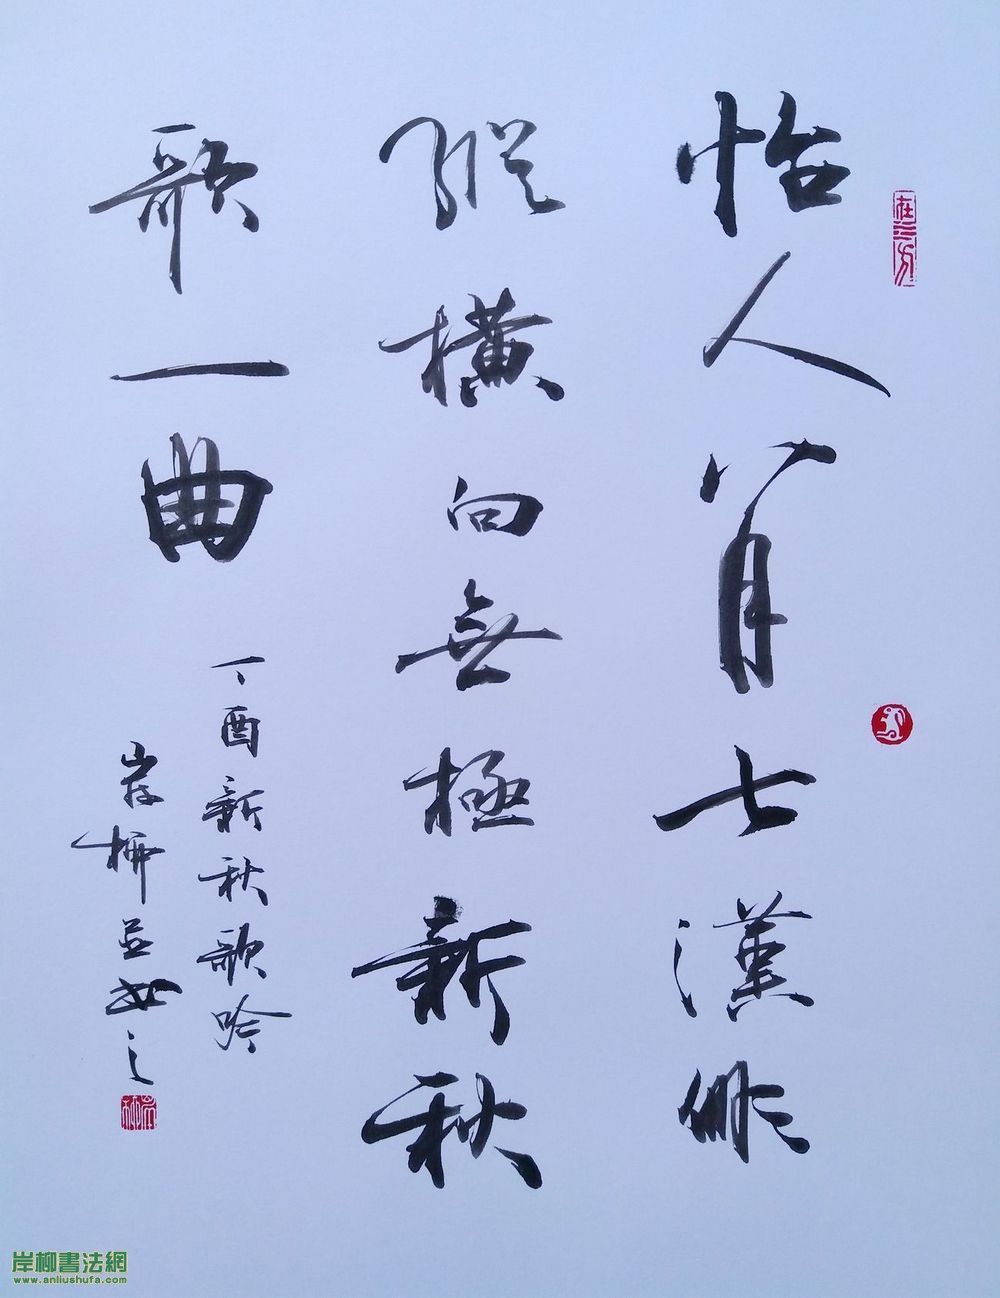 怡人八月七漢俳
縱橫向無極新秋
歌一曲
丁酉新秋歌吟
岸柳並書之
岸柳書法網
www.anliushufa.com